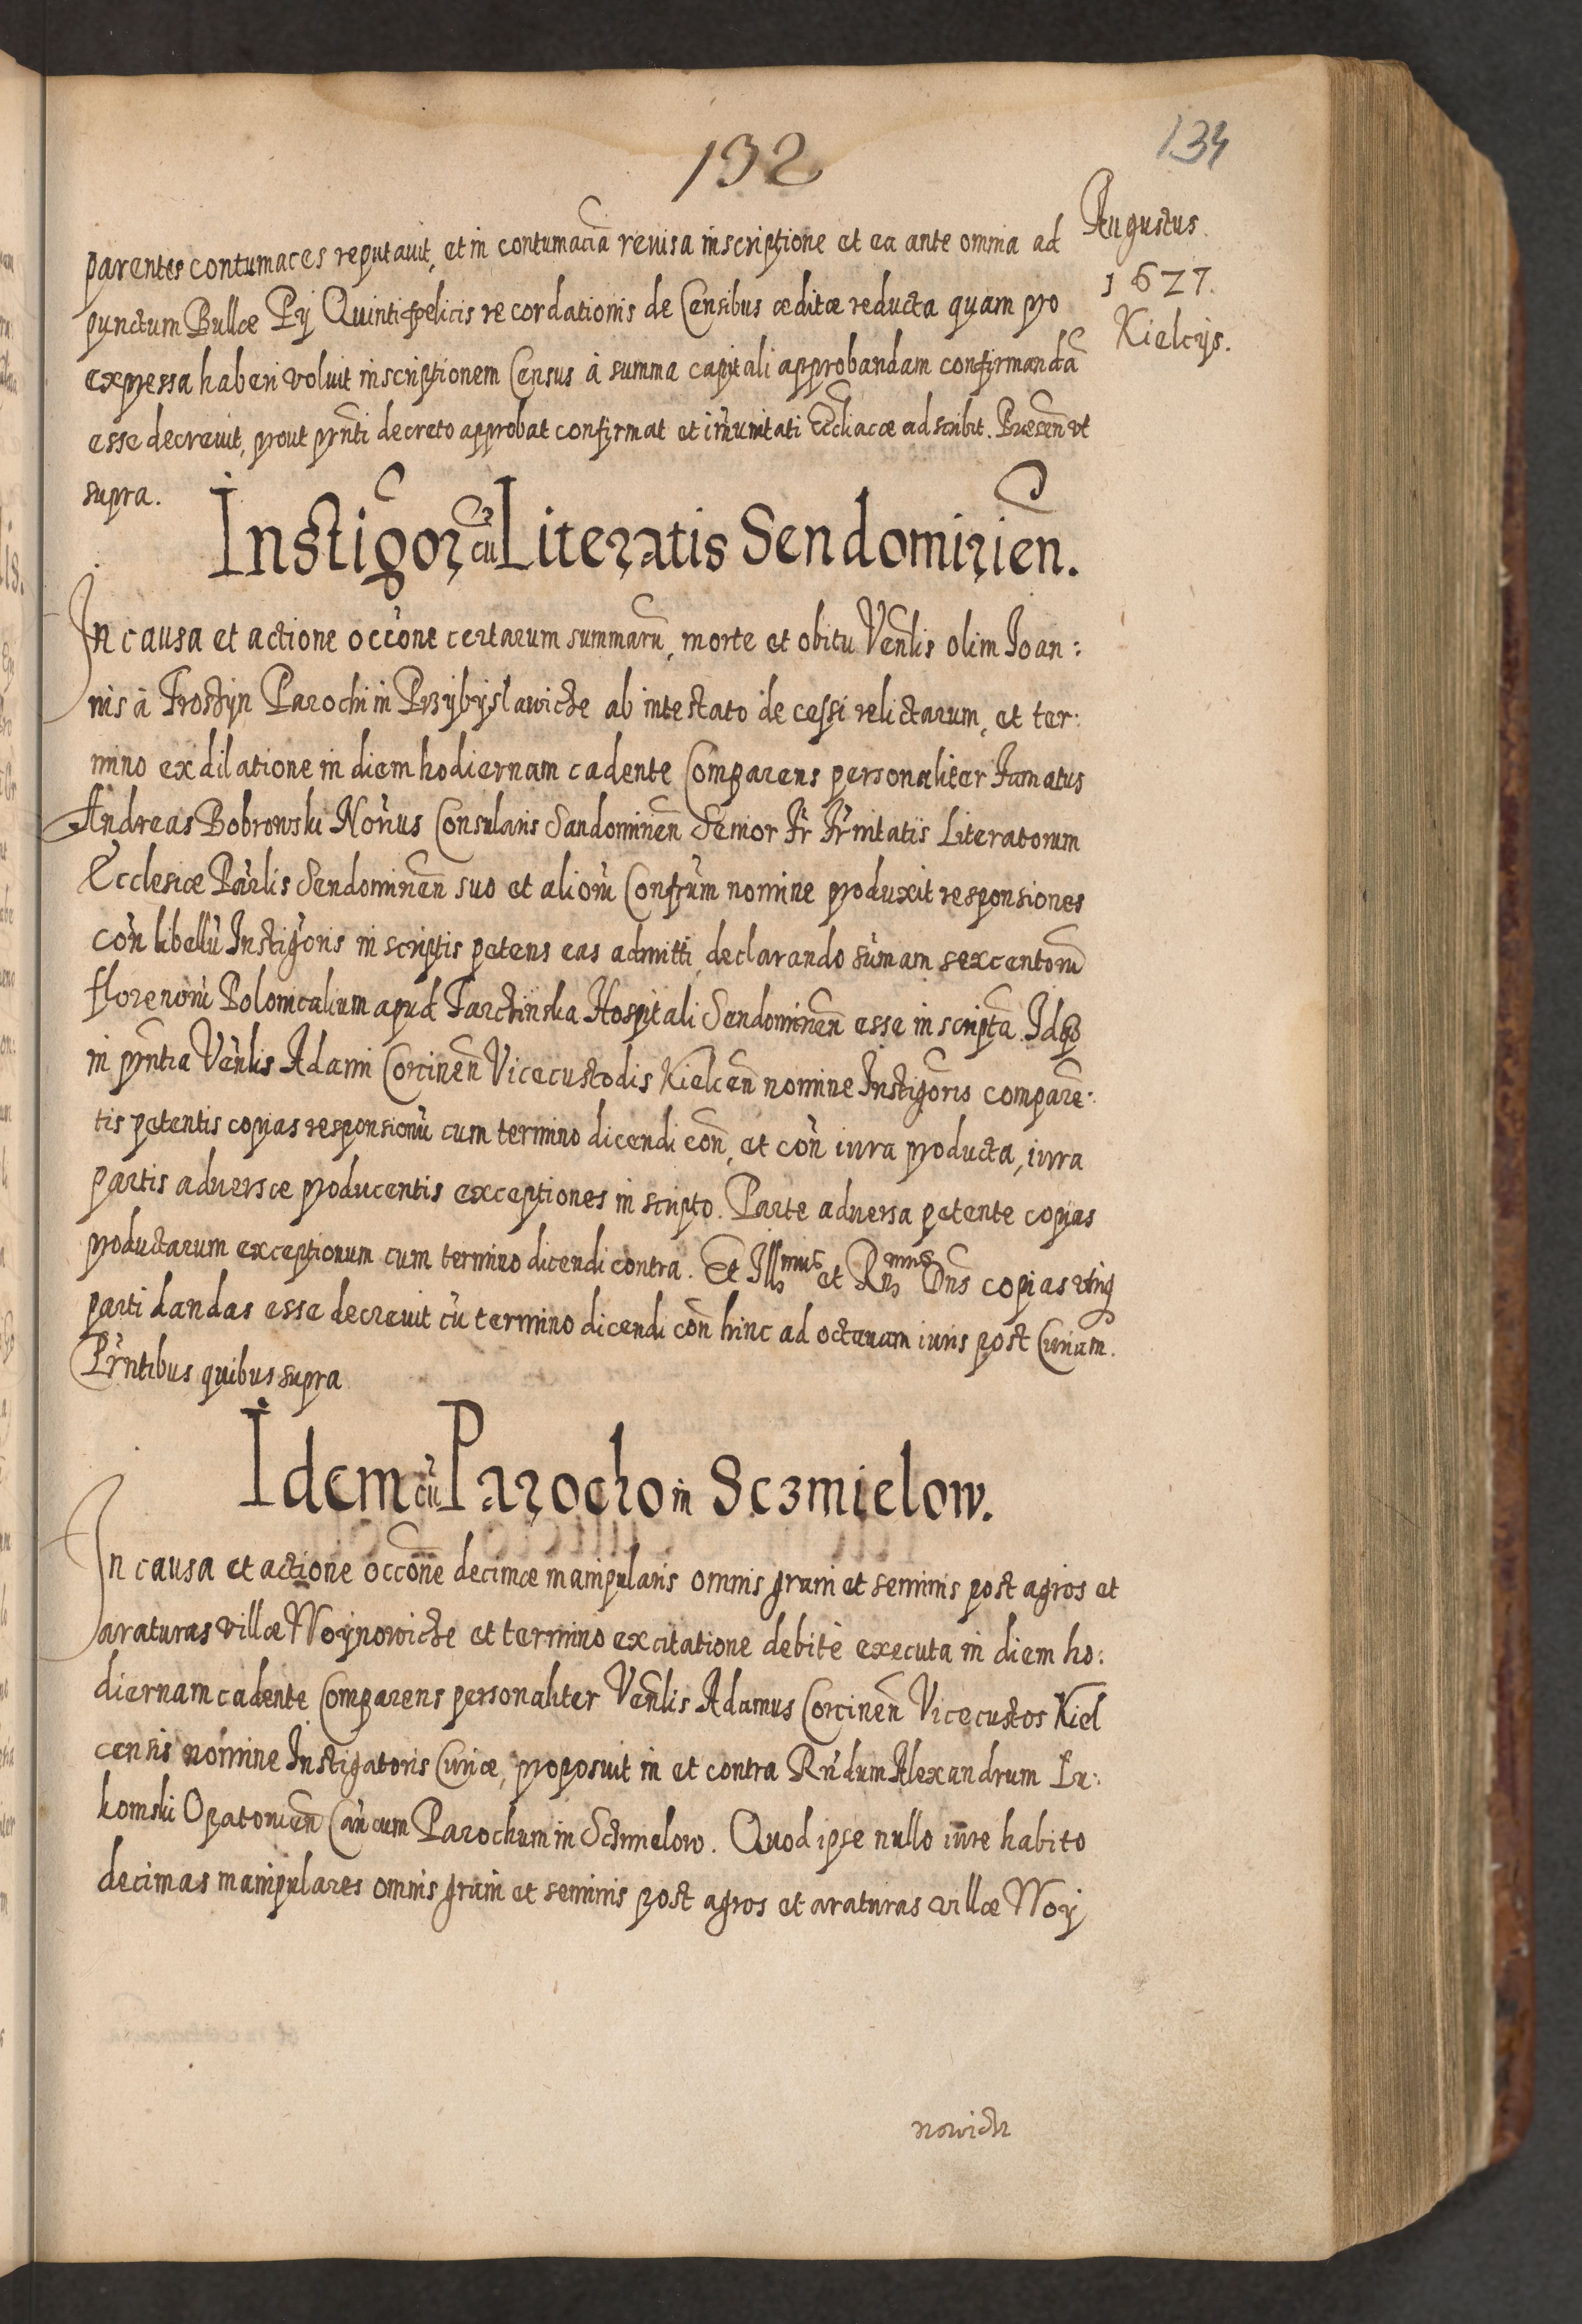 132
134
Augustus.
1627.
Kielcijs.
parentes contumaces reputauit, et in contumaciã reuisa inscriptione et ea ante omnia ad
punctum Bullæ Pij Quinti fœlicis recordationis de Censibus æditæ reducta quam pro
expressa haberi voluit inscriptionem Census à summa capitali approbandam confirmandã
esse decreuit, prout prñti decreto approbat confirmat et im̃unitati Ecclĩacæ adscribit. Præseñ vt
supra.
Instig̃or cũ Literatis Sendomirieñ.
In causa et actione occõne certarum summarũ, morte et obitu Veñlis olim Ioan:
nis à Trostyn Parochi in Przybyslawicze ab intestato decessi relictarum, et ter:
mino ex dilatione in diem hodiernam cadente Comparens personaliter Famatus
Andreas Bobrowski Noĩrius Consularis Sandomirieñ Senior Fr̃ Fr̃nitatis Literatorum
Ecclesiæ Parlĩs Sendomirieñ suo et aliorũ Confrũm nomine produxit responsiones
coñ libellũ Instig̃oris in scriptis petens eas admitti, declarando sum̃am sexcentorũ
florenorũ Polonicalium apud Tarchinska Hospitali Sendomirieñ esse inscriptã. Idq₃
in prñtia Veñlis Adami Corcineñ Vicecustodis Kielceñ nomine Instig̃oris comparẽ:
tis petentis copias responsionũ cum termino dicendi coñ, et coñ iura producta, iura
partis aduersæ producentis exceptiones in scripto. Parte aduersa petente copias
productarum exceptionum cum termino dicendi contra. Et Illmus et Rmus Dñs copias vtriq̃
parti dandas esse decreuit cũ termino dicendi coñ hinc ad octauam iuris post Curiam.
Prñtibus quibus supra
Idem cũ Parocho in Sczmielow.
In causa et actione occõne decimæ manipularis omnis grani et seminis post agros et
araturas villæ Woynowicze et termino ex citatione debitè executa in diem ho:
diernam cadente Comparens personaliter Veñlis Adamus Corcineñ Vicecustos Kiel
censis nomine Instigatoris Curiæ, proposuit in et contra Rñdum Alexandrum Lu:
komski Opatouieñ Cañcum Parochum in Sczmielow. Quod ipse nullo iure habito
decimas manipulares omnis grani et seminis post agros et araturas villæ Woy
nowicze